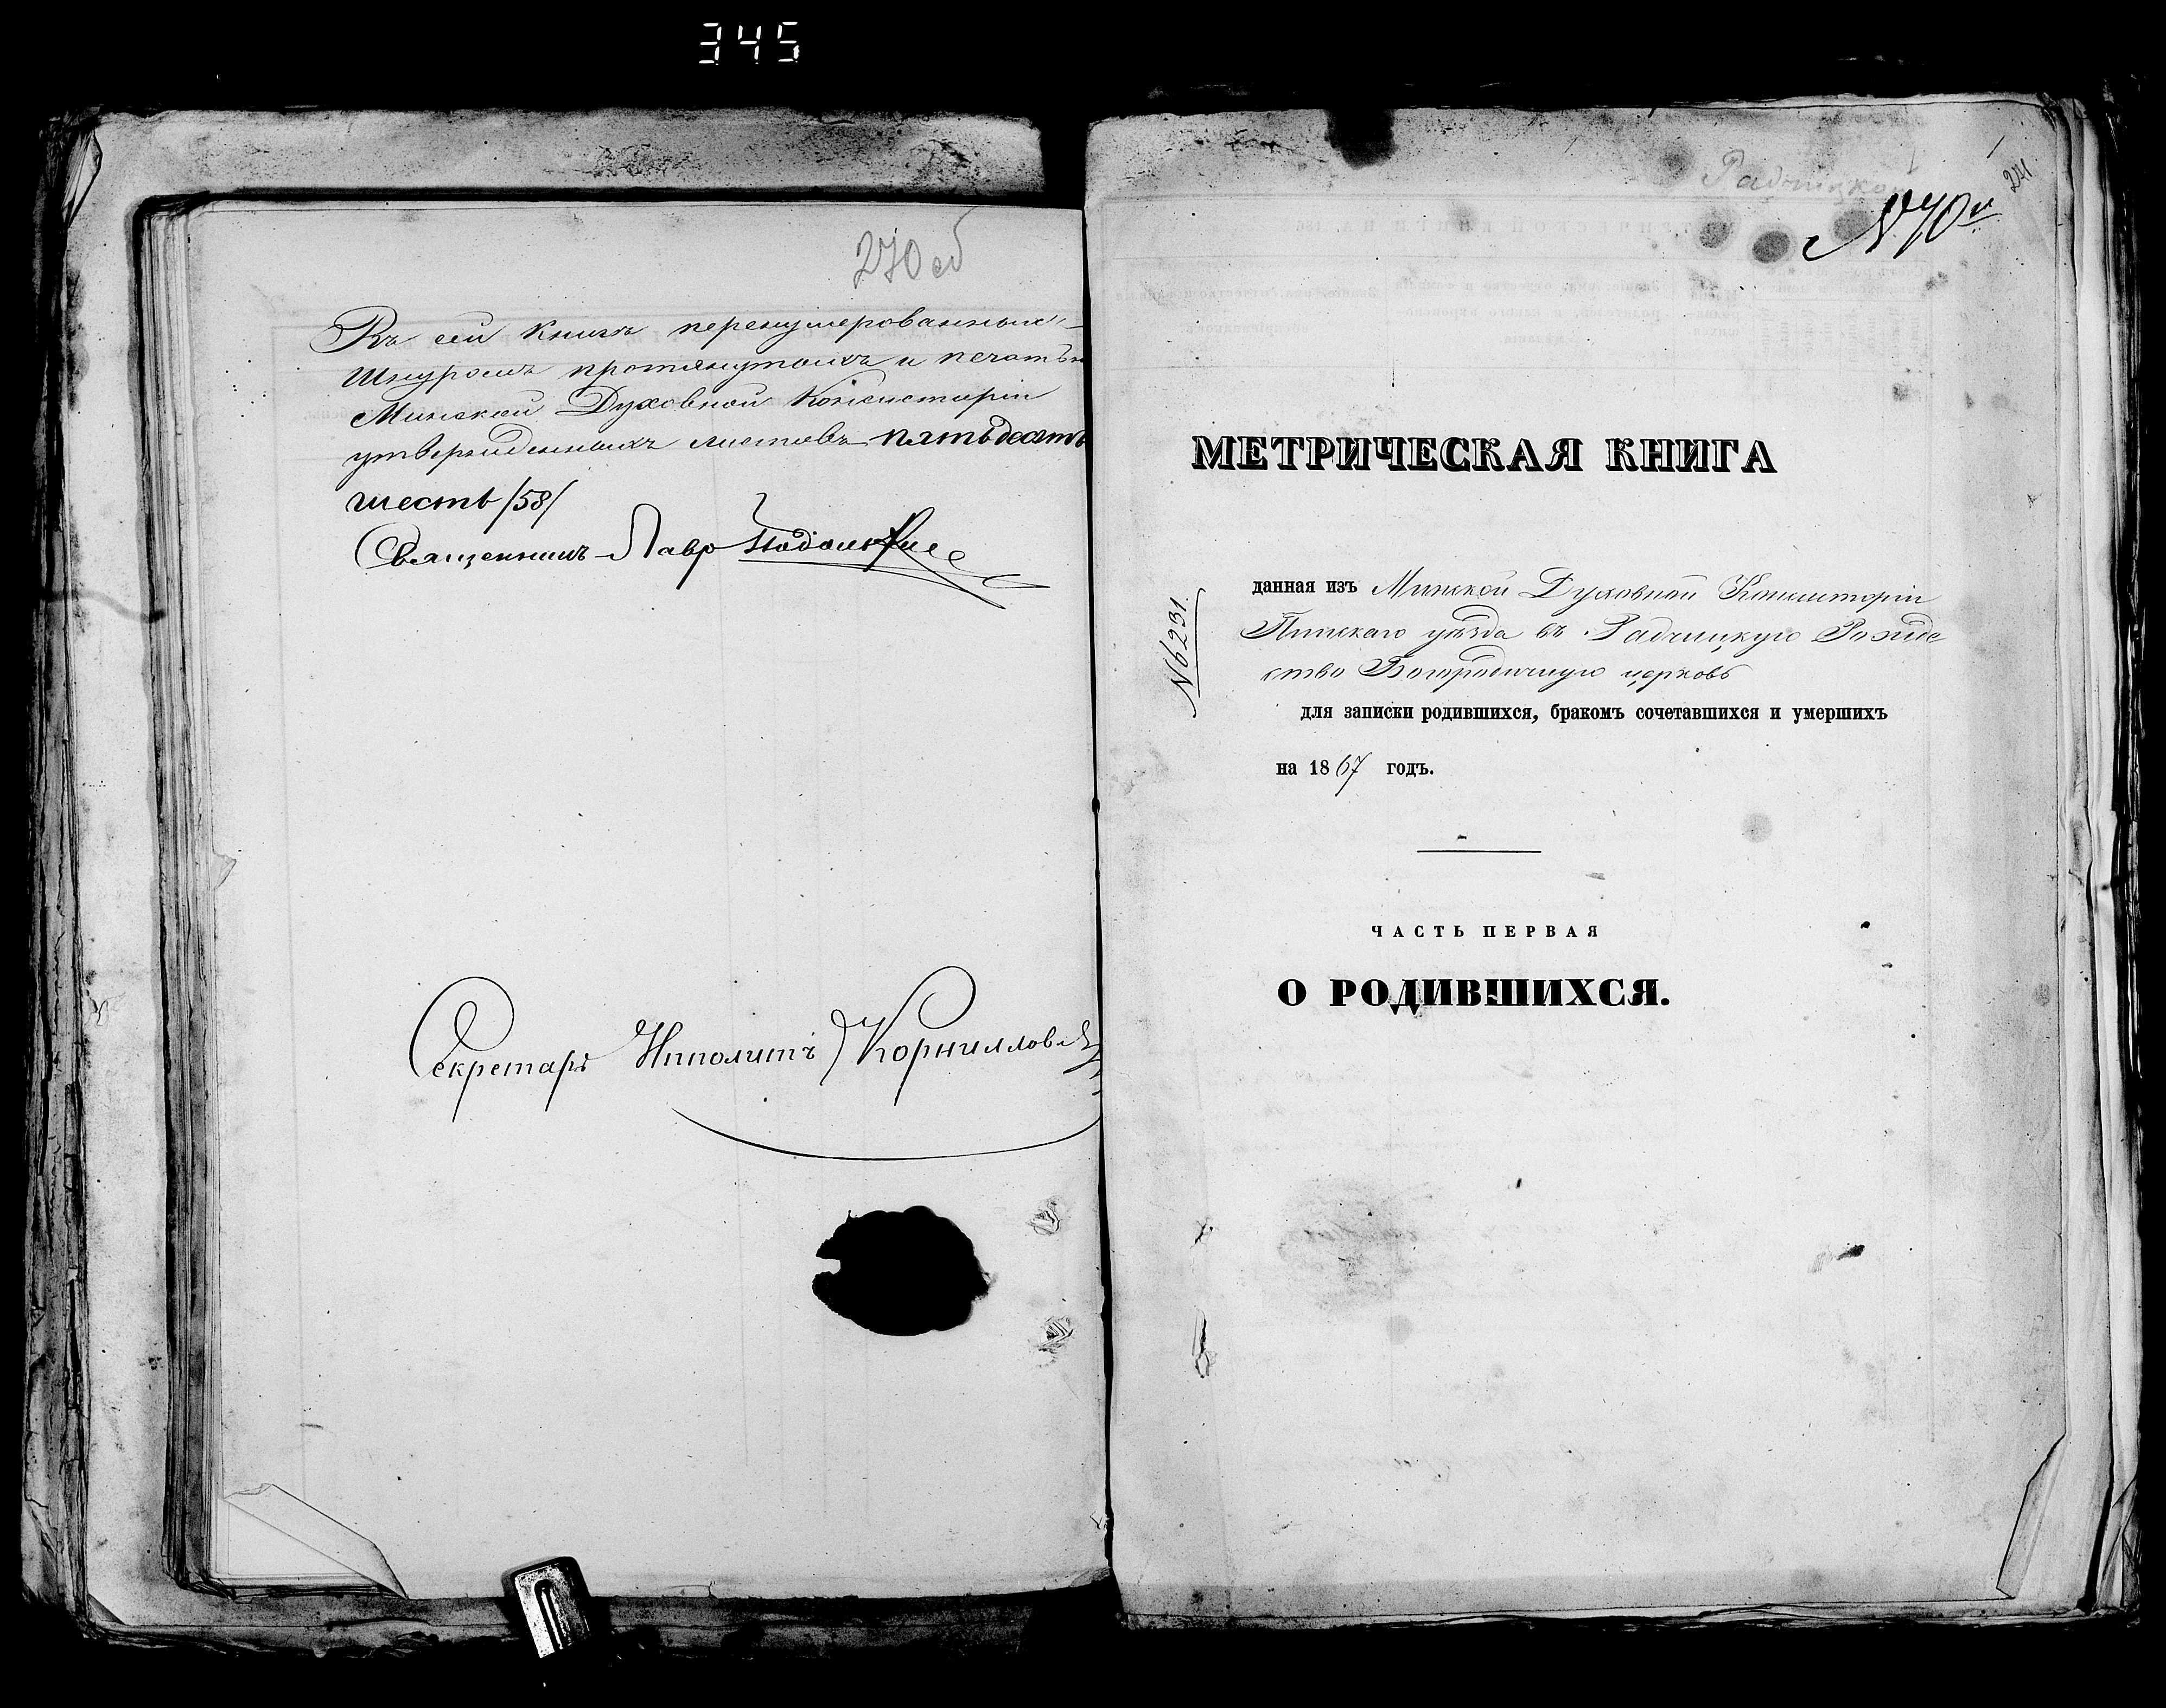 345
270 об
Въ сей книгѣ перенумерованныхъ
Шнуромъ протянутыхъ и печатью
Минской Духовной Консисторіи
утвержденныхъ листовъ пятьдесятъ
шесть /58/
Священникъ Лавр
Секретарь Ипполитъ Корниллов
Радчицкой
241
№ 70й
МЕТРИЧЕСКАЯ КНИГА
данная изъ Минской Духовной Консисторіи
Пинскаго уѣзда въ Радчицкую Рожде
ство Богородичную церковь
№ 6231.
для записки родившихся, бракомъ сочетавшихся и умершихъ
на 1867 годъ.
ЧАСТЬ ПЕРВАЯ
О РОДИВШИХСЯ.